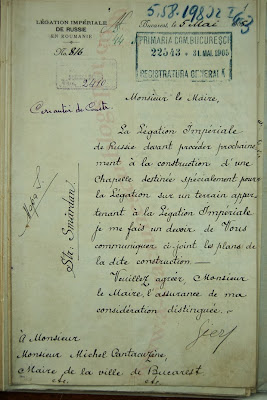 LÉGATION IMPÉRIALE
DE RUSSIE
EN ROUMANIE
No. 816
Bucarest, le 5 Mai
PRIMARIA COM. BUCURESCI
22543 * 31. MAI. 1905
REGISTRATURA GENERALĂ
2410
Monsieur le Maire,
La Légation Impériale
de Russie devant procéder prochaine
ment à la construction d'une
Chapelle destinée spécialement pour
la Légation sur un terrain appar
tenant à la Légation Impériale
je me fais un devoir de Vous
communiquer ci-joint les plans de
la dite construction.
Veuillez agréer, Monsieur
le Maire, l'assurance de ma
considération distinguée.
Str. Smârdan
À Monsieur
Monsieur Michel Cantacuzène,
Maire de la ville de Bucarest
etc. etc.